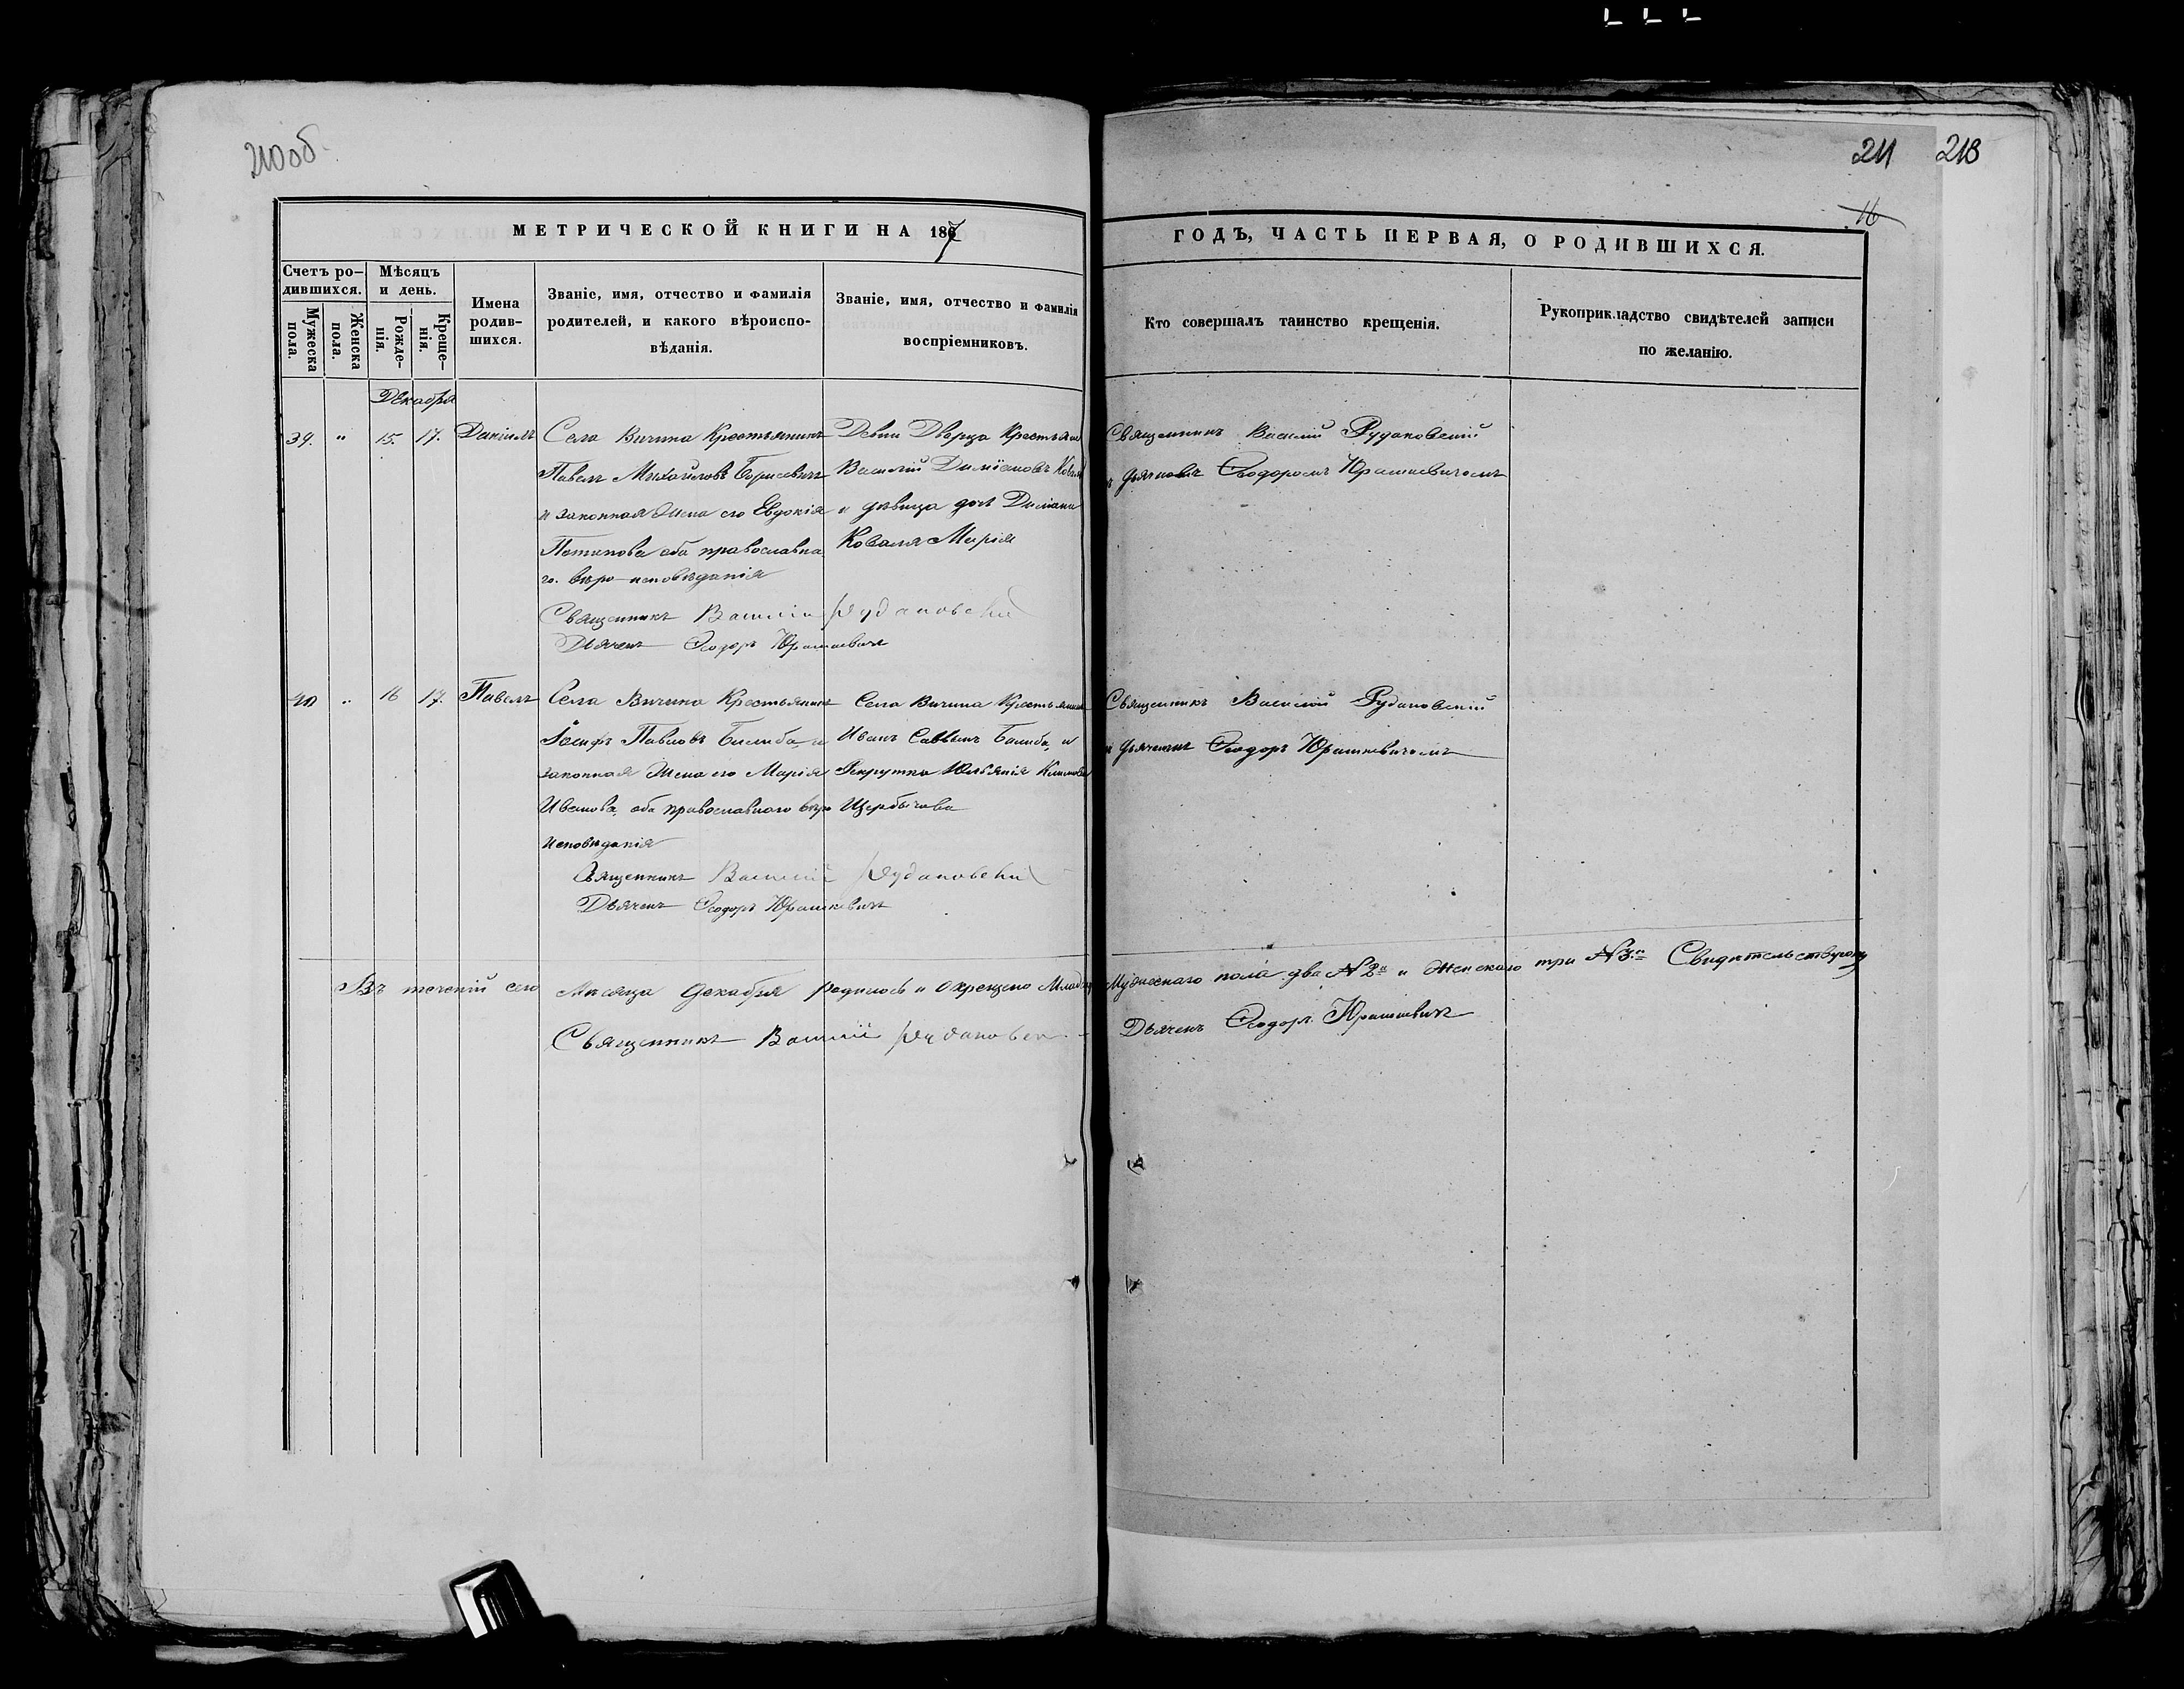 210 об.
211 218
16
МЕТРИЧЕСКОЙ КНИГИ НА 1867
ГОДЪ, ЧАСТЬ ПЕРВАЯ, О РОДИВШИХСЯ.
Счетъ ро-
дившихся.
Мужеска
пола.
Женска
пола.
Мѣсяцъ
и день.
Рожде-
нія.
Креще-
нія.
Имена
родив-
шихся.
Званіе, имя, отчество и фамилія
родителей, и какого вѣроиспо-
вѣданія.
Званіе, имя, отчество и фамилія
воспріемниковъ.
Кто совершалъ таинство крещенія.
Рукоприкладство свидѣтелей записи
по желанію.
Декабря
39. " 15. 17. Даніилъ
Села Вичина Крестьянинъ
Павелъ Михайловъ Борисевичъ
и законная Жена его Евдокія
оба православна
го. вѣро-исповѣданія
Священникъ Василій Рудановскій
Дьячекъ Ѳеодоръ Юрашкевичъ
Дворца
Василій Даміановъ
и дѣвица дочь
Коваля Марія
Священникъ Василій Рудановскій
Ѳеодоромъ Юрашкевичемъ
40 " 16 17. Павелъ
Села Вичина Крестьянинъ
Іосифъ Павловъ и
законная Жена его Марія
Иванова, оба православнаго вѣро
исповѣданія
Священникъ Василій Рудановскій
Дьячекъ Ѳеодоръ Юрашкевичъ
Села Вичина Крестьянинъ
Иванъ Саввинъ и
Рекрутка Юліанія
Священникъ Василій Рудановскій
и Ѳеодоръ Юрашкевичемъ
Въ теченіи сего Мѣсяца Декабря родилось и окрещено Мужескаго пола два № 2й и Женскаго три № 3й Свидѣтельствуют
Священникъ Василій Рудановск Дьячекъ Ѳеодоръ Юрашкевичъ